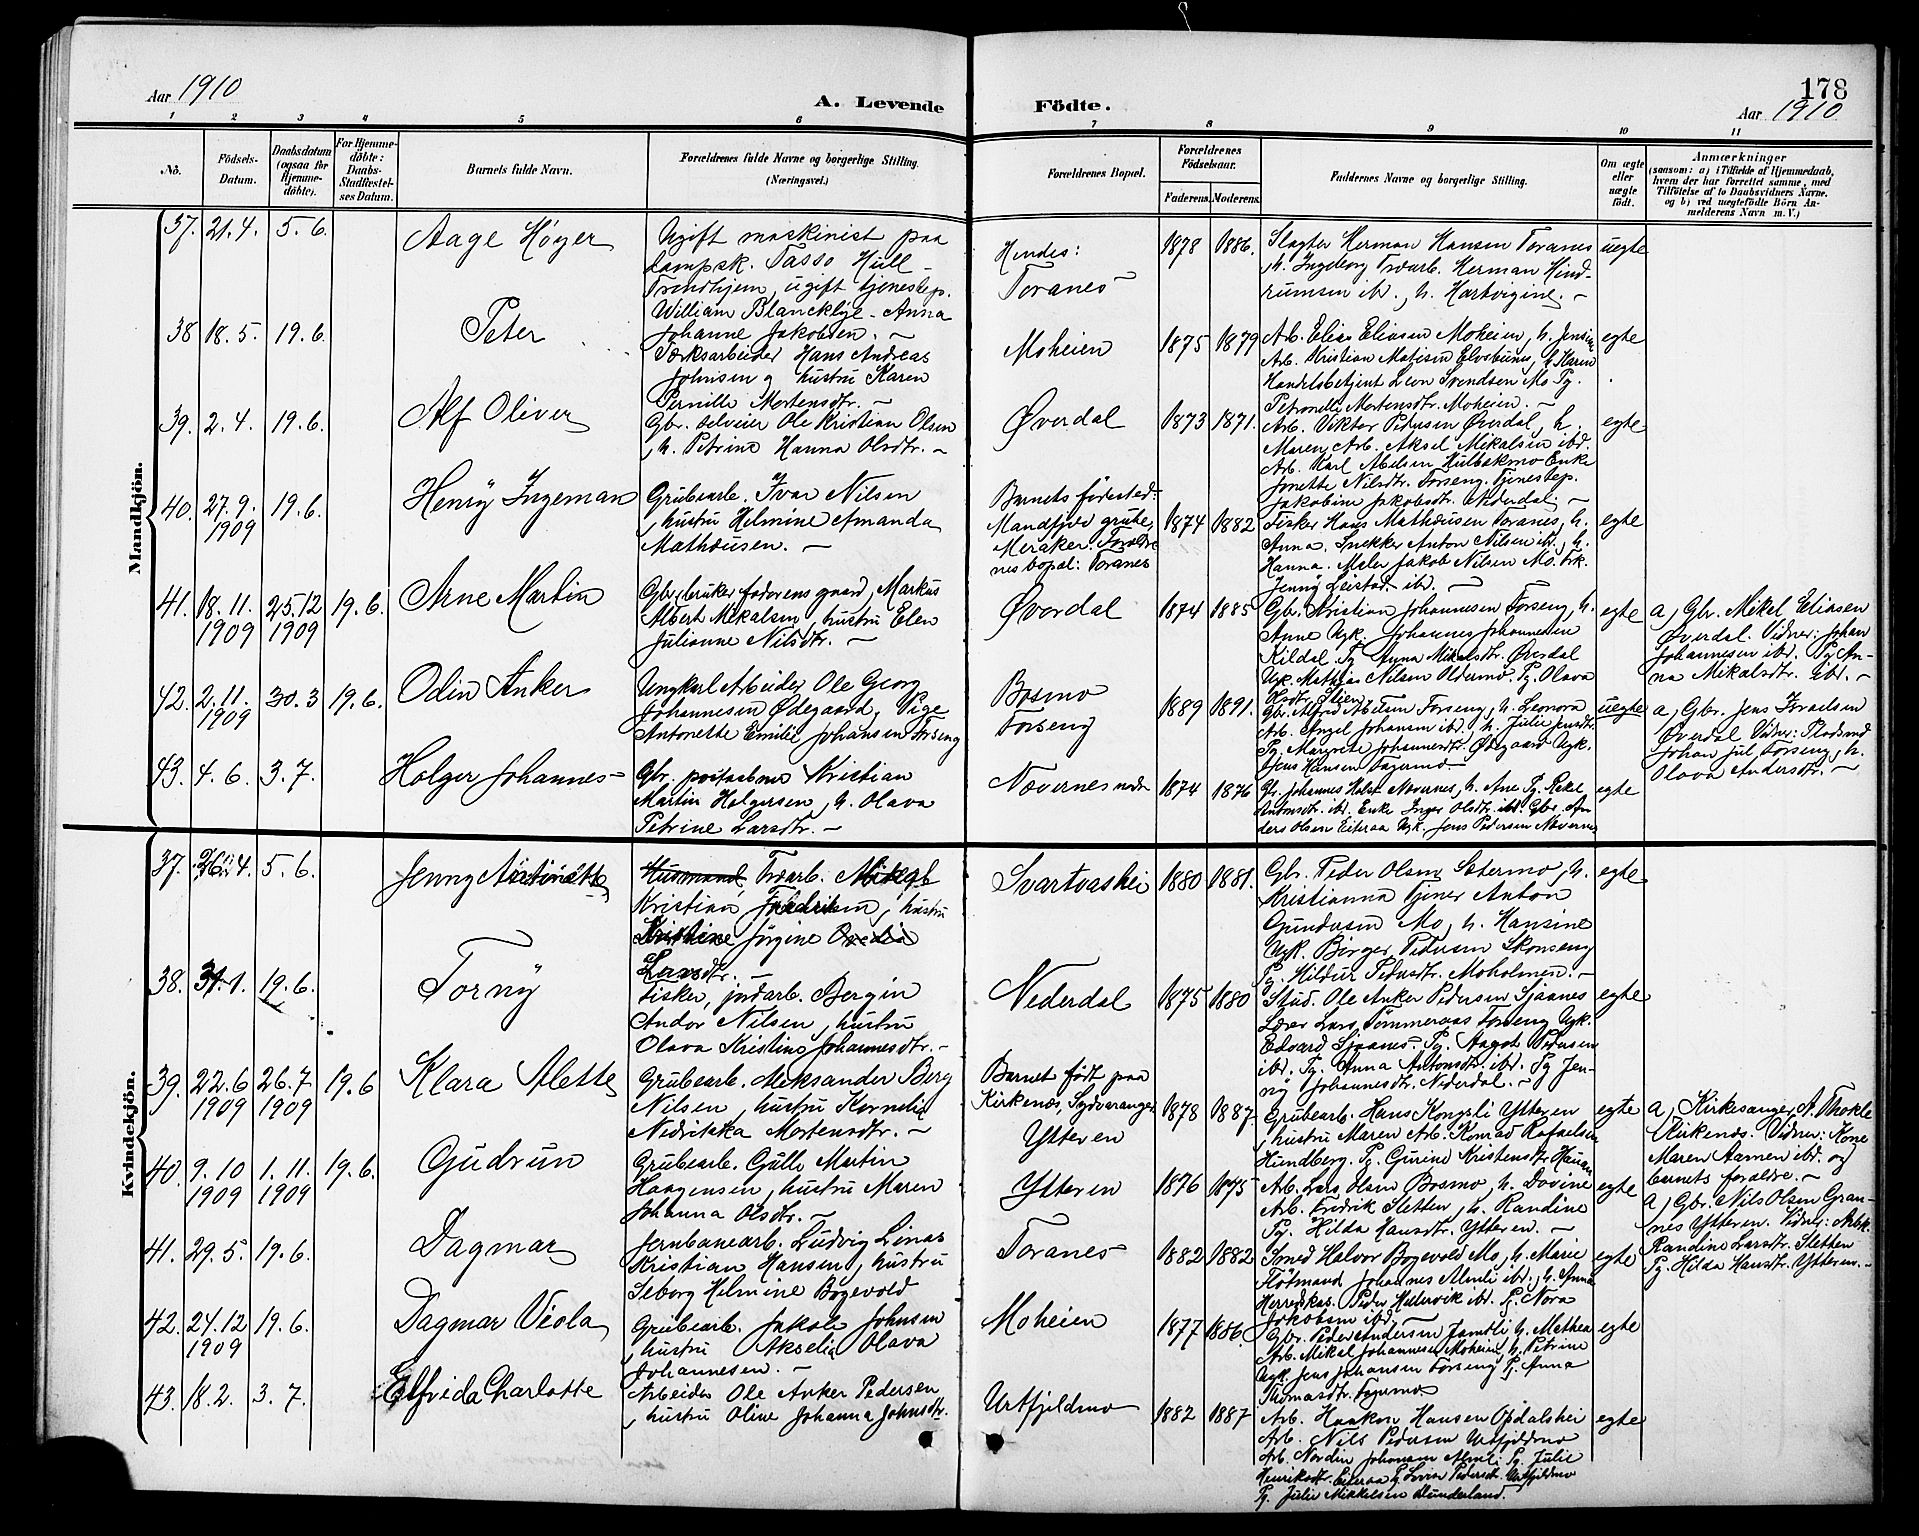 Aar 1910
A. Levende Födte.
178
Aar 1910
1 2 3 4 5 6 7 8 9 10 11
No.
Födsels-
Datum.
Daabsdatum
(ogsaa for
Hjemme-
döbte).
For Hjemme-
döbte:
Daabs-
Stadfæstel-
ses Datum.
Barnets fulde Navn.
Forældrenes fulde Navne og borgerlige Stilling.
(Næringsvei.)
Forældrenes Bopæl.
Forældrenes
Födselsaar.
Faderens. Moderens.
Faddernes Navne og borgerlige Stilling.
Om ægte
eller
uægte
födt.
Anmærkninger
(saasom: a) i Tilfælde af Hjemmedaab,
hvem der har forrettet samme, med
Tilföielse af to Daabsvidners Navne.
og b) ved uægtefödte Börn An-
melderens Navn m. V.)
Mandkjön.
37. 21.4. 5.6. Aage Höyer
Ugift maskinist paa
dampsk. Tasso Hull-
Trondhjem, ugift tjenestep.
William Blancklye - Anna
Johanne Jakobsen. -
Hendes:
Toranes
1878 1886.
Slagter Herman Hansen Toranes
h. Ingeborg Træarb. Herman Hind-
rumsen ibd., h. Hartvigine. -
uegte
38 18.5. 19.6. Peter
Værksarbeider Hans Andreas
Johnsen og hustru Karen
Pernille Mortensdtr. -
Moheien
1875 1879
Arb. Elias Eliasen Moheien, h. Jensine
Arb. Kristian Matisen , h. Karen
Handelsbetjent Leon Svendsen Mo Pg.
Petronelle Mortensdtr. Moheien. -
egte
39. 2.4. 19.6. Alf Oliver
Gbr. selveier Ole Kristian Olsen
h. Petrine Hanna Olsdtr. -
Øverdal
1873 1871.
Arb. Viktor Pedersen Øverdal, h.
Maren Arb. Aksel Mikalsen ibd.
Arb. Karl Abelsen Hulbækmo Enke
Jonette Nilsdtr. Forseng. Tjenestep.
Jakobine Jakobsdtr. Nederdal. -
egte
40. 27.9. 1909 19.6. Henry Ingeman
Grubearb. Ivar Nilsen
hustru Helmine Amanda
Mathæusen. -
Barnets födested:
Mandfjord grube,
Meraker. Foræld-
nes bopæl: Toranes
1874 1882
Fisker Hans Mathæusen Toranes, h.
Anna. Snekker Anton Nilsen ibd., h.
Hanna. Maler Jakob Nilsen Mo. Frk.
Jenny Leistad ibd. -
egte
41. 18.11. 1909 25.12 1909 19.6. Arne Martin
Gbr. bruker faderens gaard, Markus
Albert Mikalsen, hustru Elen
Julianne Nilsdtr. -
Øverdal
1874 1885
Gbr. Kristian Johannesen Forseng, h.
Anne Ugk. Johannes Johannesen
Kildal. Pg. Anna Mikalsdtr. Øverdal
Ugk. Mathias Nilsen Oldermo. Pg. Olava
egte
a, Gbr. Mikel Eliasen
Øverdal. Vidner: Johan
Johannesen ibd. Pg. An-
na Mikalsdtr. ibd. -
42. 2.11. 1909 30.3 19.6. Odin Anker
Ungkarl Arbeider Ole Georg
Johannesen Ødegaard, Pige
Antonette Emilie Johansen Forseng
Bosmo
Forseng
1889 1891.
Gbr. Alfred Nilsen Forseng, h. Leonora
Arb. Angel Johansen ibd., h. Julie Jensdtr.
Pg. Margrete Johannesdtr. Ødegaard Ugk.
Jens Hansen Fagermo. -
uegte
a, Gbr. Jens Israelsen
Øverdal Vidner: Plodsmd
Johan Jul Forseng, h.
Olava Andersdtr. -
43. 4.6. 3.7. Holger Johannes
Gbr. postaabner Kristian
Martin Holgersen, h. Olava
Petrine Larsdtr. -
Nævernes nedre
1874 1876
Gbr. Johannes Holst Nævernes, h. Ane Pg. Rakel
Antonsdtr. ibd. Enke Inger Olsdtr. ibd. Gbr. An-
ders Olsen Eiteraa Ugk. Jens Pedersen Nævernes
egte
Kvindekjön.
37. 26.4. 5.6. Jenny Antonette
Husmand Træarb. Mikal
Kristian Fredriksen, hustru
Kristine Jörgine
Larsdtr.
Svartvashei
1880 1881.
Gbr. Peder Olsen Sætermo, h.
Kristianna Tjener Anton
Gundersen Mo, h. Hansine
Ugk. Birger Pedersen Skonseng
Pg. Hildur Pedersdtr. Moholmen. -
egte
38. 31.1. 19.6. Torny
Fisker, jordarb. Bergin
Andor Nilsen, hustru
Olava Kristine Johannesdtr. -
Nederdal
1875 1880
Stud. Ole Anker Pedersen Sjaanes
Lærer Lars Tömmeraas Forseng Ugk.
Edvard Sjaanes. Pg. Aagot Pedersen
ibd. Pg. Anna Antonsdtr. ibd. Pg Jen-
ny Johannesdtr. Nederdal. -
egte
39. 22.6 1909 26.7 1909 19.6 Klara Alette
Grubearb. Aleksander Berg
Nilsen, hustru Kornelia
Nedrikka Mortensdtr. -
Barnet födt paa
Kirkenes, Sydvaranger
Ytteren
1878 1887.
Grubearb. Hans Kongsli Ytteren
hustru Maren Arb. Konrad Rafaelsen
Hundberg. Pg. Gurine Kristensdtr Hauan
egte
a, Kirkesanger A. Thokle
Kirkenes. Vidner: Kone
Maren Aamen ibd. og
barnets forældre. -
40. 9.10 1909 1.11. 1909 19.6. Gudrun
Grubearb. Gulle Martin
Haagensen, hustru Maren
Johanna Olsdtr. -
Ytteren
1876 1875
Arb. Lars Olsen Bosmo, h. Dovine
Arb. Fredrik Sletten, h. Randine
Pg. Hilda Hansdtr. Ytteren. -
egte
a, Gbr. Nils Olsen Gran-
nes Ytteren. Vidner: Arbk.
Randine Larsdtr. Sletten
Pg. Hilda Hansdtr. Ytteren. -
41. 29.5. 19.6. Dagmar
Jernbanearb. Ludvig Linas
Kristian Hansen, hustru
Seborg Helmine Bogevold
Toranes
1882 1882
Smed Halvor Bogevold Mo, h. Marie
Flötmand Johannes Almli ibd., h. Anna
Herredskas. Peder Hellervik ibd. Pg. Nora
Jakobsen ibd. -
egte
42. 24.12 1909 19.6. Dagmar Viola
Grubearb. Jakob Johnsen
hustru Akselia Olava
Johannesen. -
Moheien
1877 1886.
Gbr. Peder Andersen Jamtli h. Mathea
Arb. Mikal Johannesen Moheien, h. Petrine
Ugk. Jens Johansen Forseng Pg. Anna
Thomasdtr. Fagermo
egte
43. 18.2. 3.7. Elfrida Charlotte
Arbeider Ole Anker Pedersen
hustru Oline Johanna Johnsdtr.
Urtfjeldmo
1882 1887
Arb. Haakon Hansen Opdalshei
Arb. Nils Pedersen Urtfjeldmo
Arb. Nordin Johansen Almli Pg. Julie
Henriksdtr. Eiteraa Pg. Lovise Pedersdt. Urtfjeldmo
Pg. Julie Mikkelsen Dunderland.
egte